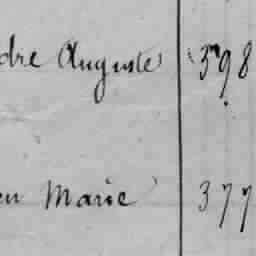 dre Auguste 398
en Marie 377